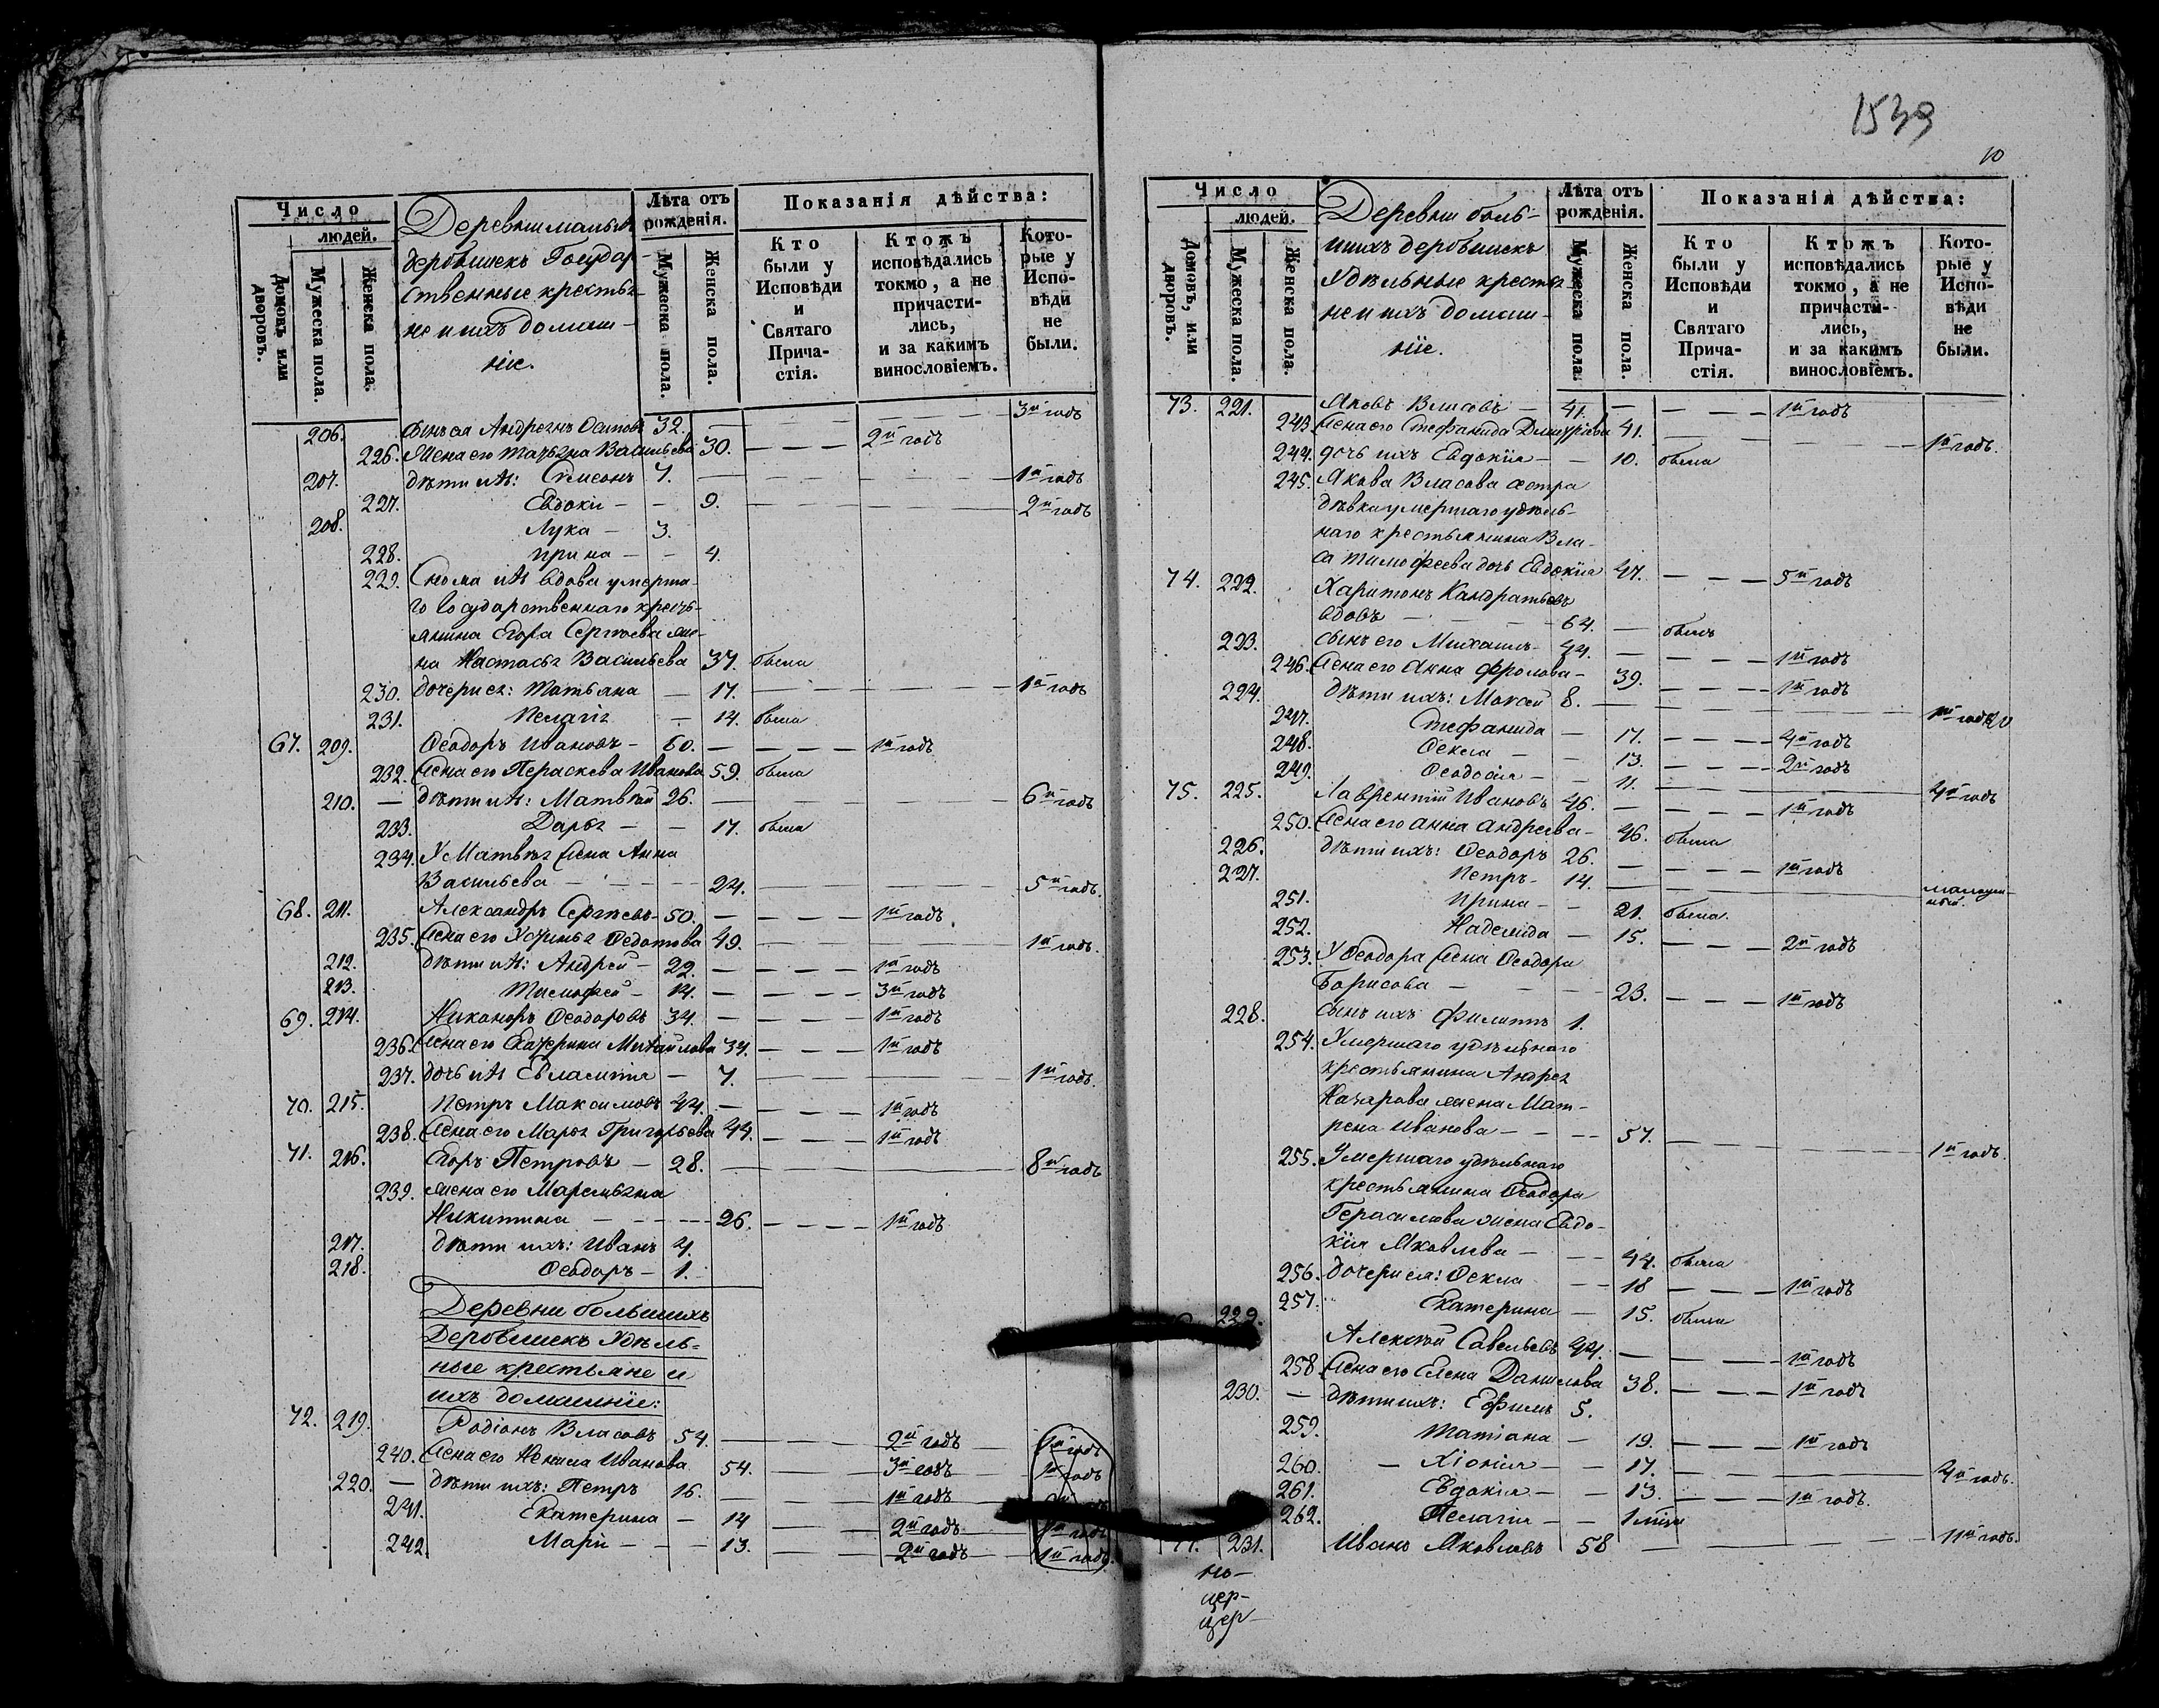 Число
людей.
Домовъ или дворовъ.
Мужеска пола.
Женска пола.
Деревни малыхъ
деровлискъ Государ-
ственные крестья-
не и ихъ домаш-
ніе.
Лѣта отъ рожденія.
Мужеска пола.
Женска пола.
Показанія дѣйства:
Кто были у Исповѣди и Святаго Прича- стія.
Ктожъ исповѣдались токмо, а не причасти- лись, и за какимъ винословіемъ.
Кото- рые у Испо- вѣди не были.
206. сынъ ея Андреянъ Осиповъ 32. — — — 3й годъ
226. Жена его Татьяна Васильева 30. — — 2й годъ
207. дѣти ихъ: Симеонъ 7. — — — 1й годъ
227. Евдокія — — 9. — — — 2й годъ
208. Лука — 3.
228. Ирина — — 4.
229. Снoха ихъ вдова умерша-
го государственнаго кресть-
янина Егора Сергѣева же-
на Настасья Васильева 37. была
230. дочери ея: Татьяна — 17. — — — 1й годъ
231. Пелагія — 14. была
67. 209. Ѳеодоръ Ивановъ — 60. — — — — 1й годъ
232. Жена его Параскева Иванова 59. была
210. — дѣти ихъ: Матвѣй 26. — — — 6й годъ
233. Дарья — — 17. была
234. У Матвѣя жена Анна
Васильева — — — 24. — — — 5й годъ.
68. 211. Александръ Сергѣевъ — 50. — — — — 1й годъ
235. Жена его Устинья Ѳедотова 49. — — — 1й годъ.
212. дѣти ихъ: Андрей — 22. — — — — 1й годъ
213. Тимофей — 14. — — — — 3й годъ
69. 214. Никаноръ Ѳеодоровъ 34. — — — — 1й годъ
236. Жена его Екатерина Михайлова 34. — — — 1й годъ
237. дочь ихъ Евлампія — 7. — — — 1й годъ.
70. 215. Петръ Максимовъ 44. — — — — 1й годъ
238. Жена его Марья Григорьева 44. — — — 1й годъ
71. 216. Егоръ Петровъ — 28. — — — 8й годъ
239. жена его Маремьяна
Никитина — — — 26. — — — — 1й годъ
217. дѣти ихъ: Иванъ 4.
218. Ѳеодоръ — 1.
Деревни большихъ
Деровлискъ Удѣль-
ные крестьяне и
ихъ домашніе:
72. 219. Родіонъ Власовъ 54. — — — 2й годъ — 1й годъ
240. Жена его Ненила Иванова 54. — — 3й годъ — 1й годъ
220. — дѣти ихъ: Петръ 16. — — — 1й годъ
241. Екатерина — 14 — — 2й годъ — 1й годъ
242. Марія — — — 13. — — 2й годъ — 1й годъ.
1539
10
Число
людей.
Домовъ, или дворовъ.
Мужеска пола.
Женска пола.
Деревни боль-
шихъ деровлискъ
Удѣльные крестья-
не и ихъ домаш-
ніе.
Лѣта отъ рожденія.
Мужеска пола.
Женска пола.
Показанія дѣйства:
Кто были у Исповѣди и Святаго Прича- стія.
Ктожъ исповѣдались токмо, а не причасти- лись, и за какимъ винословіемъ.
Кото- рые у Испо- вѣди не были.
73. 221. Яковъ Власовъ — 41. — — — — 1й годъ
243. Жена его Стефанида Димитріева 41. — — — 1й годъ.
244. дочь ихъ Евдокія — — 10. была
245. Якова Власова сестра
дѣвка умершаго удѣль-
наго крестьянина Вла-
са Тимофеева дочь Евдокія 47. — — — 5й годъ
74. 222. Харитонъ Кандратьевъ
вдовъ — — — 64. — былъ
223. сынъ его Михаилъ — 44. — — — — 1й годъ
246. Жена его Анна Фролова — 39. — — — 1й годъ
224. дѣти ихъ: Моисей 8. — — — 1й годъ
247. Стефанида — 17. — — — 4й годъ
248. Ѳекла — 13. — — — 2й годъ
249. Ѳеодосія — — 11. — — — 4й годъ
75. 225. Лаврентій Ивановъ 46. — — — — 1й годъ
250. Жена его Анна Андреева — 46. была
226. дѣти ихъ: Ѳеодоръ 26. — — — — 1й годъ
227. Петръ — 14. — — —
251. Ирина — — 21. была
252. Надежда — 15. — — — 2й годъ
253. У Ѳеодора жена Ѳеодора
Борисова — — — 23. — — — 1й годъ
228. сынъ ихъ Филиппъ 1.
254. Умершаго удѣльнаго
крестьянина Андрея
Назарова жена Мат-
рена Иванова — — — 57. — — — 1й годъ.
255. Умершаго удѣльнаго
крестьянина Ѳеодора
Герасимова жена Евдо-
кія Яковлева — — — 44. была
256. дочери ея: Ѳекла — — 18 — — — 1й годъ
257. Екатерина — 15. была
229. Алексѣй Савельевъ 44. — — — — 1й годъ
258. Жена его Елена Данилова 38. — — — 1й годъ
230. — дѣти ихъ: Ефимъ 5.
259. Татіана — 19. — — — 1й годъ
260. — Хіонія — — 17. — — — 4й годъ.
261. Евдокія — — 13. — — — 1й годъ.
262. Пелагія — — 1
77. 231. Иванъ Яковлевъ 58 — — — 11й годъ.